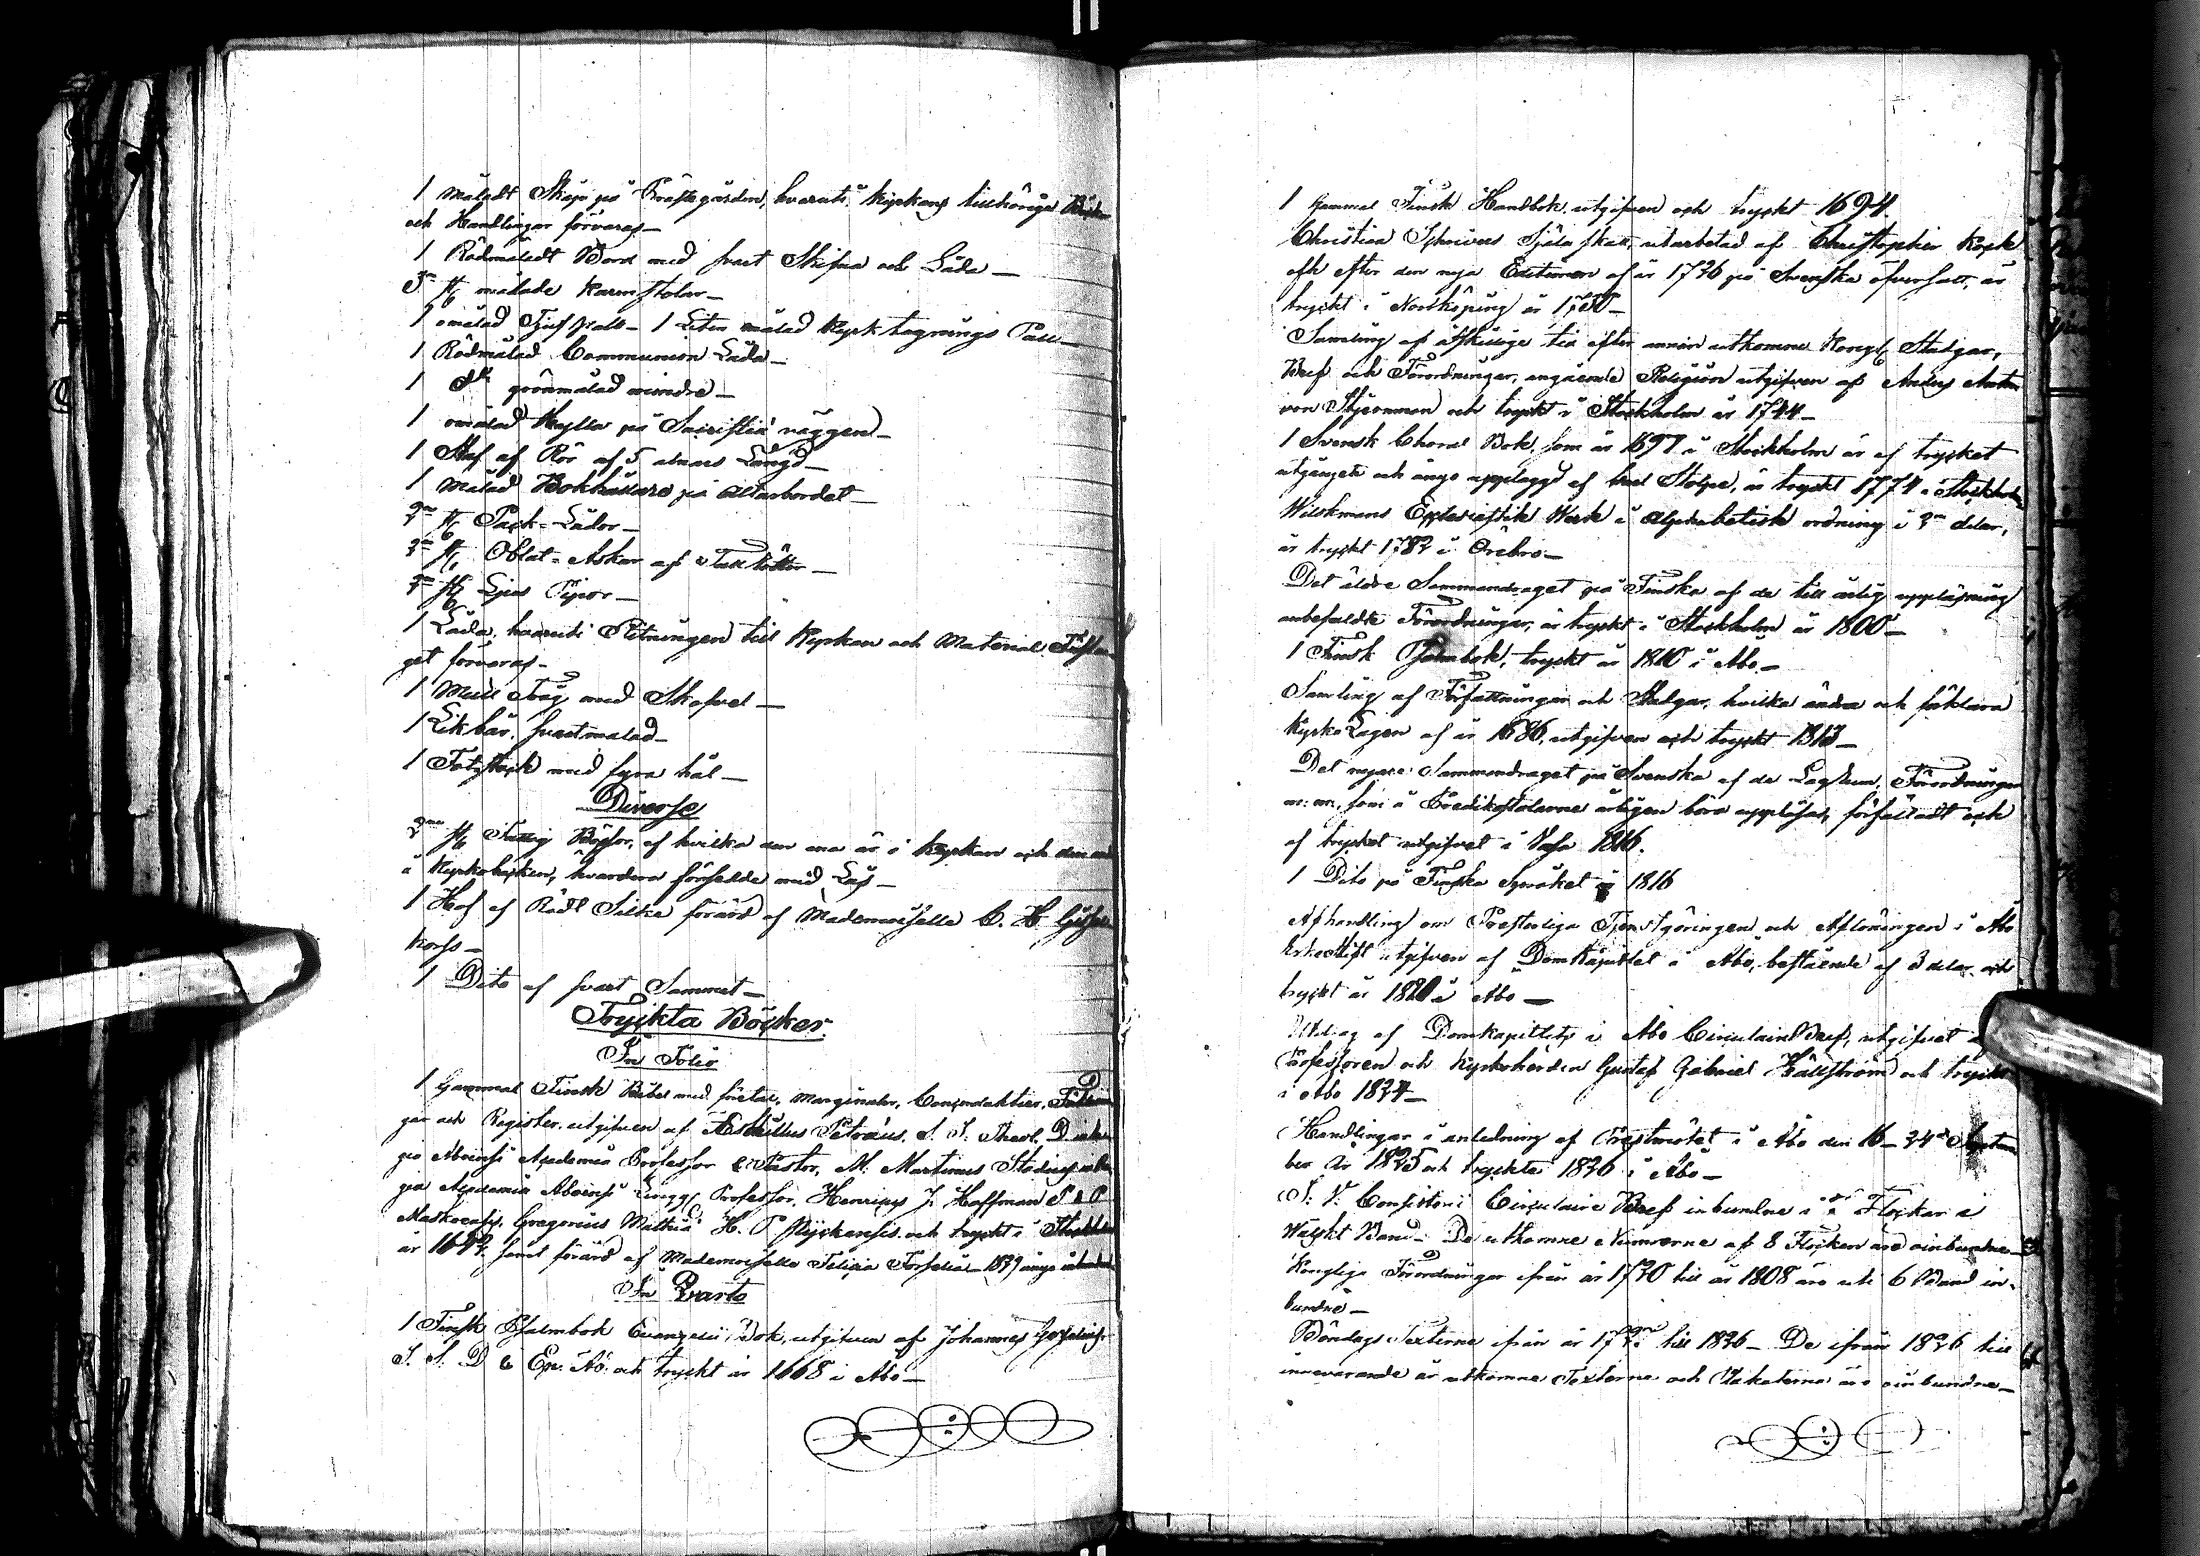 1 Måladt Skåp på Prästegården, hvaruti Kyrkans tillhöriga Böcker
och Handlingar förvaras—
1 Rödmåladt Bord med svart Skifva och Låda—
3ne st. målade Karmstolar—
1 omålad Pall— 1 Liten målad Kyrktagnings Pall—
1 Rödmålad Communion Låda—
1 Do grönmålad mindre—
1 omålad Hylla på Sacristiæ väggen—
1 Staf af Rör af 5 alnars Längd—
1 Målad Bokhållare på altarbordet—
2ne st. Pack-Lådor—
2ne st. Oblat-Askar af
2ne st. Ljus Pipor—
1 Låda, hvaruti Ritningen till Kyrkan och Material Försla-
get förvaras—
1 Mull Tråg med Skofvel—
1 Likbår, svartmålad—
1 Fotstock med fyra hål—
Diverse
2ne st. Fattig Bössor, af hvilka den ena är i Kyrkan och den andra
i Kyrkobacken, hvardera försedde med Lås—
1 Håf af Rödt Silke förärd af Mademoiselle C. H.
kors—
1 Dito af svart Sammet—
Tryckta Böcker
In Folio
1 Gammal Finsk Bibel med företal, Marginaler, Concordantier,
gar och Register, utgifven af Eskillus Petræus, S. S. Theol. D
gia Aboensi Academia Professor & Pastor, M. Martinus Stodius
gia Academia Aboensi Lingg. Professor, Henricus J. Hoffman P & P
Maskoensis, Gregorius Matthiæ H. P och tryckt i Stockholm
år 1642, samt förärd af Mademoiselle Felicia Forselia— 1839 ånyo inbunden
In Qvarto
1 Finsk Psalmbok Evangelii Bok, utgifven af Johannes Gezelius
S. S. D & Ep. Ab. och tryckt år 1668 i Åbo—
1 Gammal Finsk Handbok, utgifven och tryckt 1694.
Christian Schrivers Själaskatt, utarbetad af Christopher Kock
och efter den nya Editionen af år 1726 på Svenska öfversatt, är
tryckt i Norrköping år
Samling af åtskillige tid efter annan utkomne Kongl. Stadgar,
Bref och Förordningar, angående Religion utgifven af Anders Anton
von Stiernman och tryckt i Stockholm år 1744—
1 Svensk Choral Bok, som år 1697 i Stockholm är af trycket
utgången och ånyo upplaggd af Carl Stolpe, är tryckt 1774 i Stockholm
Wilskmans Ecclesiastik Werk i Alphabetisk ordning i 2ne delar,
är tryckt 1782 i Örebro—
Det äldre Sammandraget på Finska af de till årlig uppläsning
anbefaldte Förordningar, är tryckt i Stockholm år 1800—
1 Finsk Psalmbok, tryckt år 1810 i Åbo—
Samling af Författningar och Stadgar, hvilka ändra och förklara
Kyrko Lagen af år 1686, utgifven och tryckt 1813—
Det nyare Sammandraget på Svenska af de Lagrum, Förordningar
m: m:, som i Predikostolarne årligen böra uppläsas, författadt och
af trycket utgifvet i Vasa 1816.
1 Dito på Finska Språket 1816
Afhandling om Presterliga Tjenstgöringen och Aflöningen i Åbo
Erkestift utgifven af DomKapitlet i Åbo, bestående af 3 delar och
tryckt år 1820 i Åbo—
Utdrag af Domkapitlets i Åbo Circulaire Bref, utgifvet
Professoren och Kyrkoherden Gustaf Gabriel Hällström och tryckt
i Åbo 1824—
Handlingar i anledning af Prestmötet i Åbo den 16–24de Septem
ber År 1825 och tryckte 1826 i Åbo—
S: V: Consistorii Circulaire Bref inbundne i Flockar i
Walskt Band— De utkomne Numrorne af 8 Flocken äro oinbundne—
Kongliga Förordningar ifrån år 1720 till år 1808 äro uti 6 Band in-
bundne—
Böndags Texterne ifrån år till 1826— De ifrån 1826 till
innevarande år utkomne Texterne och Plakaterne äro oinbundne—